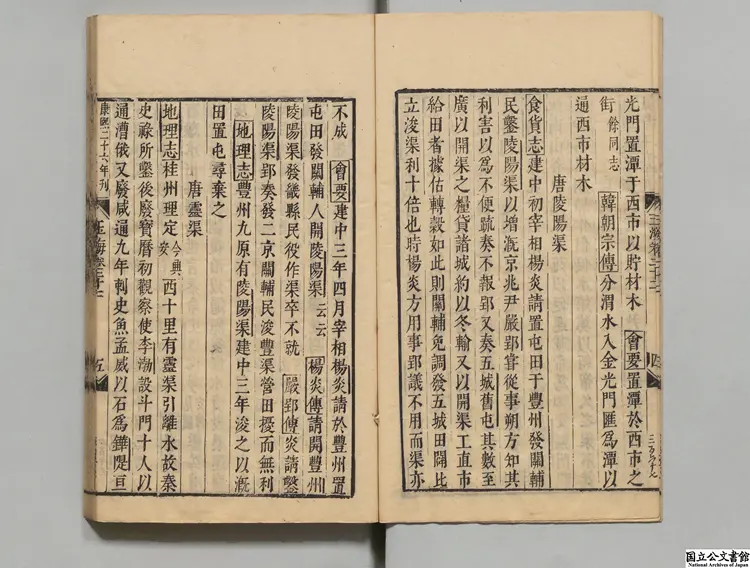 光門置潭于西市以貯材木 會要置潭於西市之
街餘同志 韓朝宗傳分渭水入金光門匯爲潭以
通西市材木
唐陵陽渠
食貨志建中初宰相楊炎請置屯田于豐州發關輔
民鑿陵陽渠以增漑京兆尹嚴郢甞從事朔方知其
利害以爲不便疏奏不報郢又奏五城舊屯其數至
廣以開渠之糧貸諸城約以冬輸又以開渠工直市
給田者據估轉穀如此則關輔免調發五城田闢比
立浚渠利十倍也時楊炎方用事郢議不用而渠亦
玉海卷二十二
不成 會要建中三年四月宰相楊炎請於豐州置
屯田發關輔人開陵陽渠云云 楊炎傳請開豐州
陵陽渠發畿縣民役作渠卒不就 嚴郢傳炎請鑿
陵陽渠郢奏發二京關輔民浚豐渠營田擾而無利
地理志豐州九原有陵陽渠建中三年浚之以漑
田置屯尋棄之
唐靈渠
地理志桂州理定今興安西十里有靈渠引離水故秦
史祿所鑿後廢寶曆初觀察使李渤設斗門十八以
通漕俄又廢咸通九年刺史魚孟威以石爲鏵隄亘
康熙二十六年刊
玉海卷二十二
五
国立公文書館
National Archives of Japan